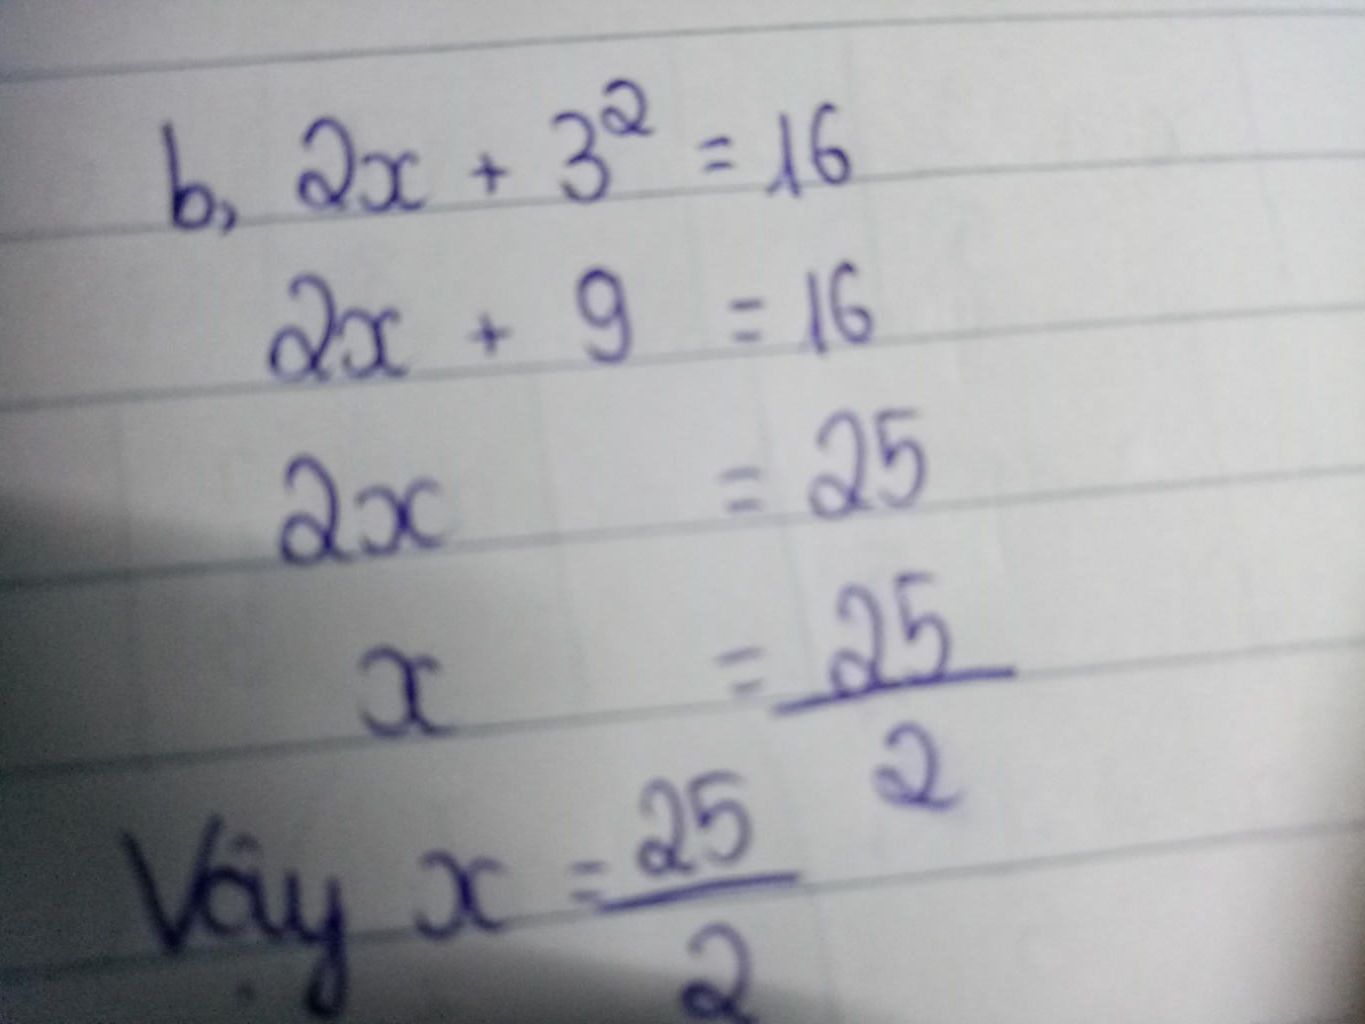 b, 2x + 3² = 16
2x + 9 = 16
2x = 25
x = 25/2
Vậy x = 25/2